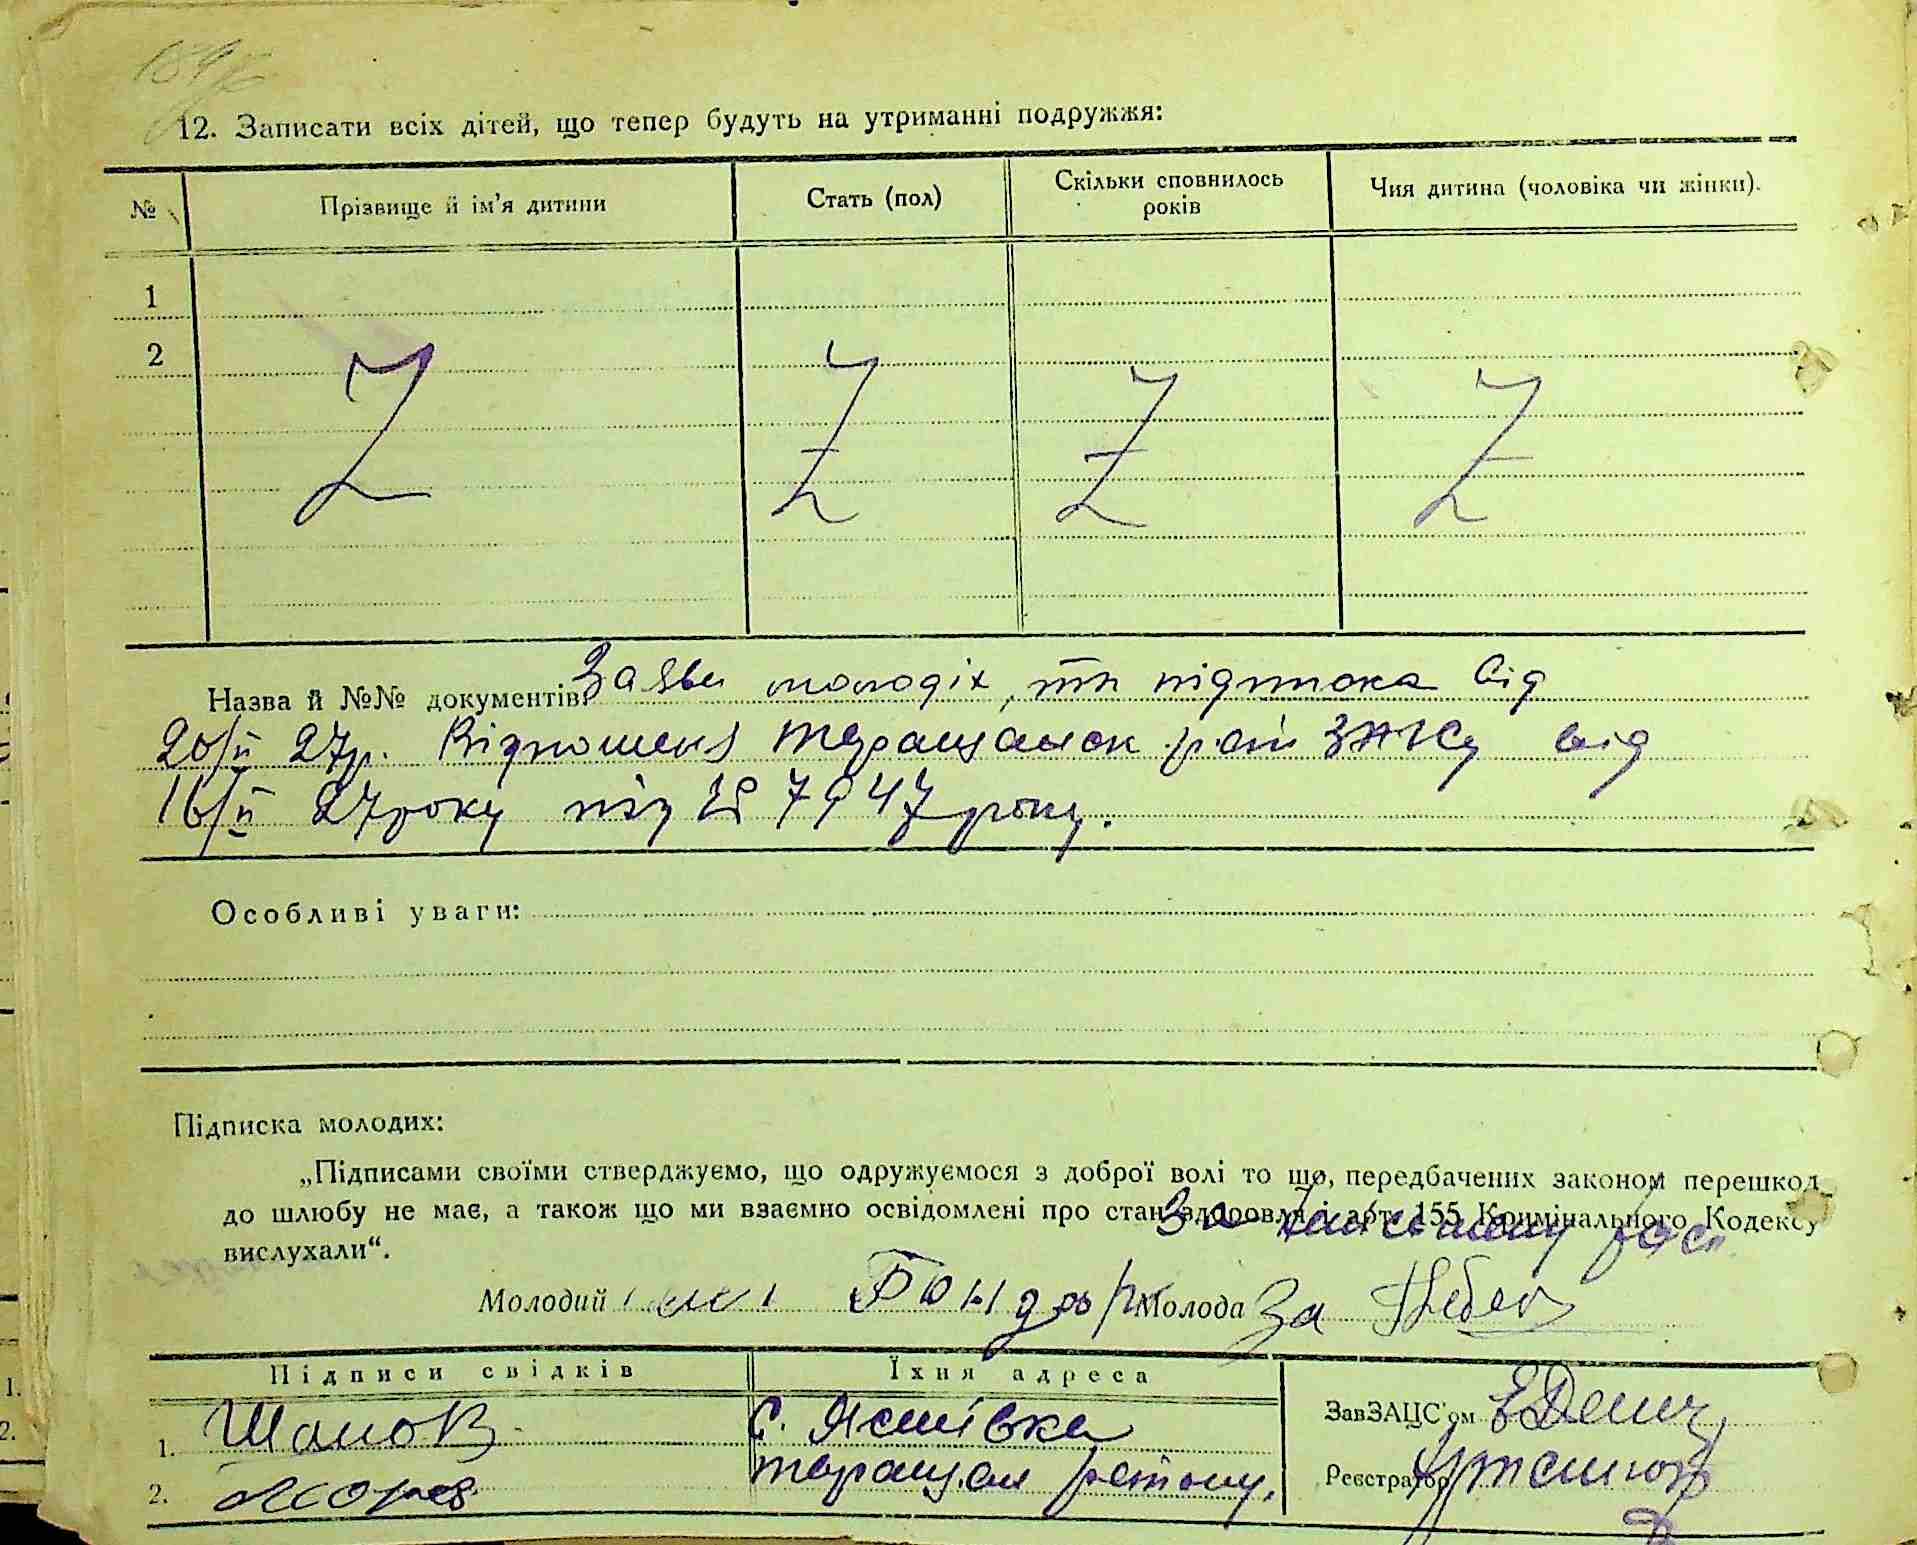 12. Записати всіх дітей, що тепер будуть на утриманні подружжя:
№ Прізвище й ім'я дитини Стать (пол) Скільки сповнилось років Чия дитина (чоловіка чи жінки).
1
2
Z Z Z Z
Назва й №№ документів: Заява молодіх, та підписка від
20/II 27р. Відношеня Таращанськ рай ЗАКСу від
16/II 27 року під № 7947 року.
Особливі уваги:
Підписка молодих:
„Підписами своїми стверджуємо, що одружуємося з доброї волі то що, передбачених законом перешкод
до шлюбу не має, а також що ми взаємно освідомлені про стан здоровля і арт. 155 Кримінального Кодексу
вислухали“.
Молодий Бондар Молода За
Підписи свідків Їхня адреса
1. Шамов с. Яснівка ЗавЗАЦС'ом
2. Таращан району. Реєстратор
1.
2.